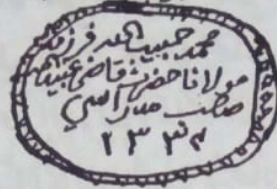 محمد حبیب اللہ فرزند
مولانا حضرت قاضی عبید اللہ
صاحب مدراسي
١٣٣٤